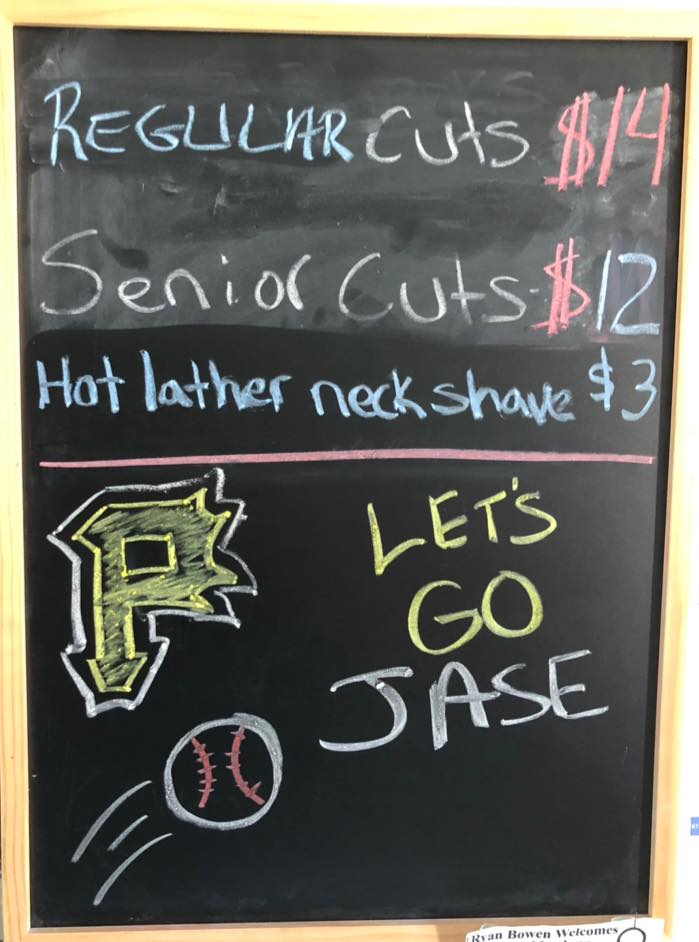 REGULAR Cuts $14
Senior Cuts $12
Hot lather neck shave $3
P
LET'S
GO
JASE
Ryan Bowen Welcomes